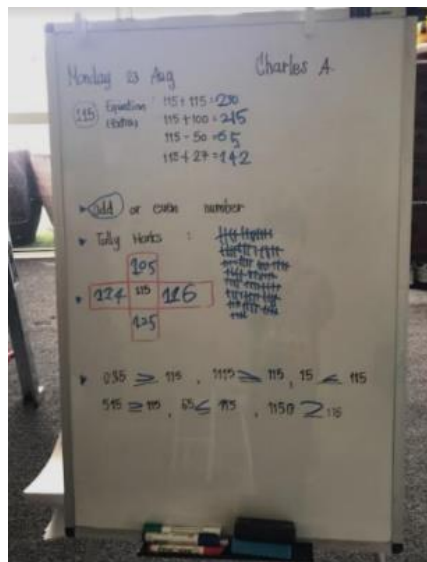 Monday 23 Aug Charles A.
115 Equation : 115 + 115 = 230
(extra) 115 + 100 = 215
115 - 50 = 65
115 + 27 = 142
odd or even number
Tally Marks :
105
114 115 116
125
035 ≥ 115 , 1115 ≥ 115 , 15 ≤ 115
515 ≥ 115 , 65 ≤ 115 , 1150 ≥ 115